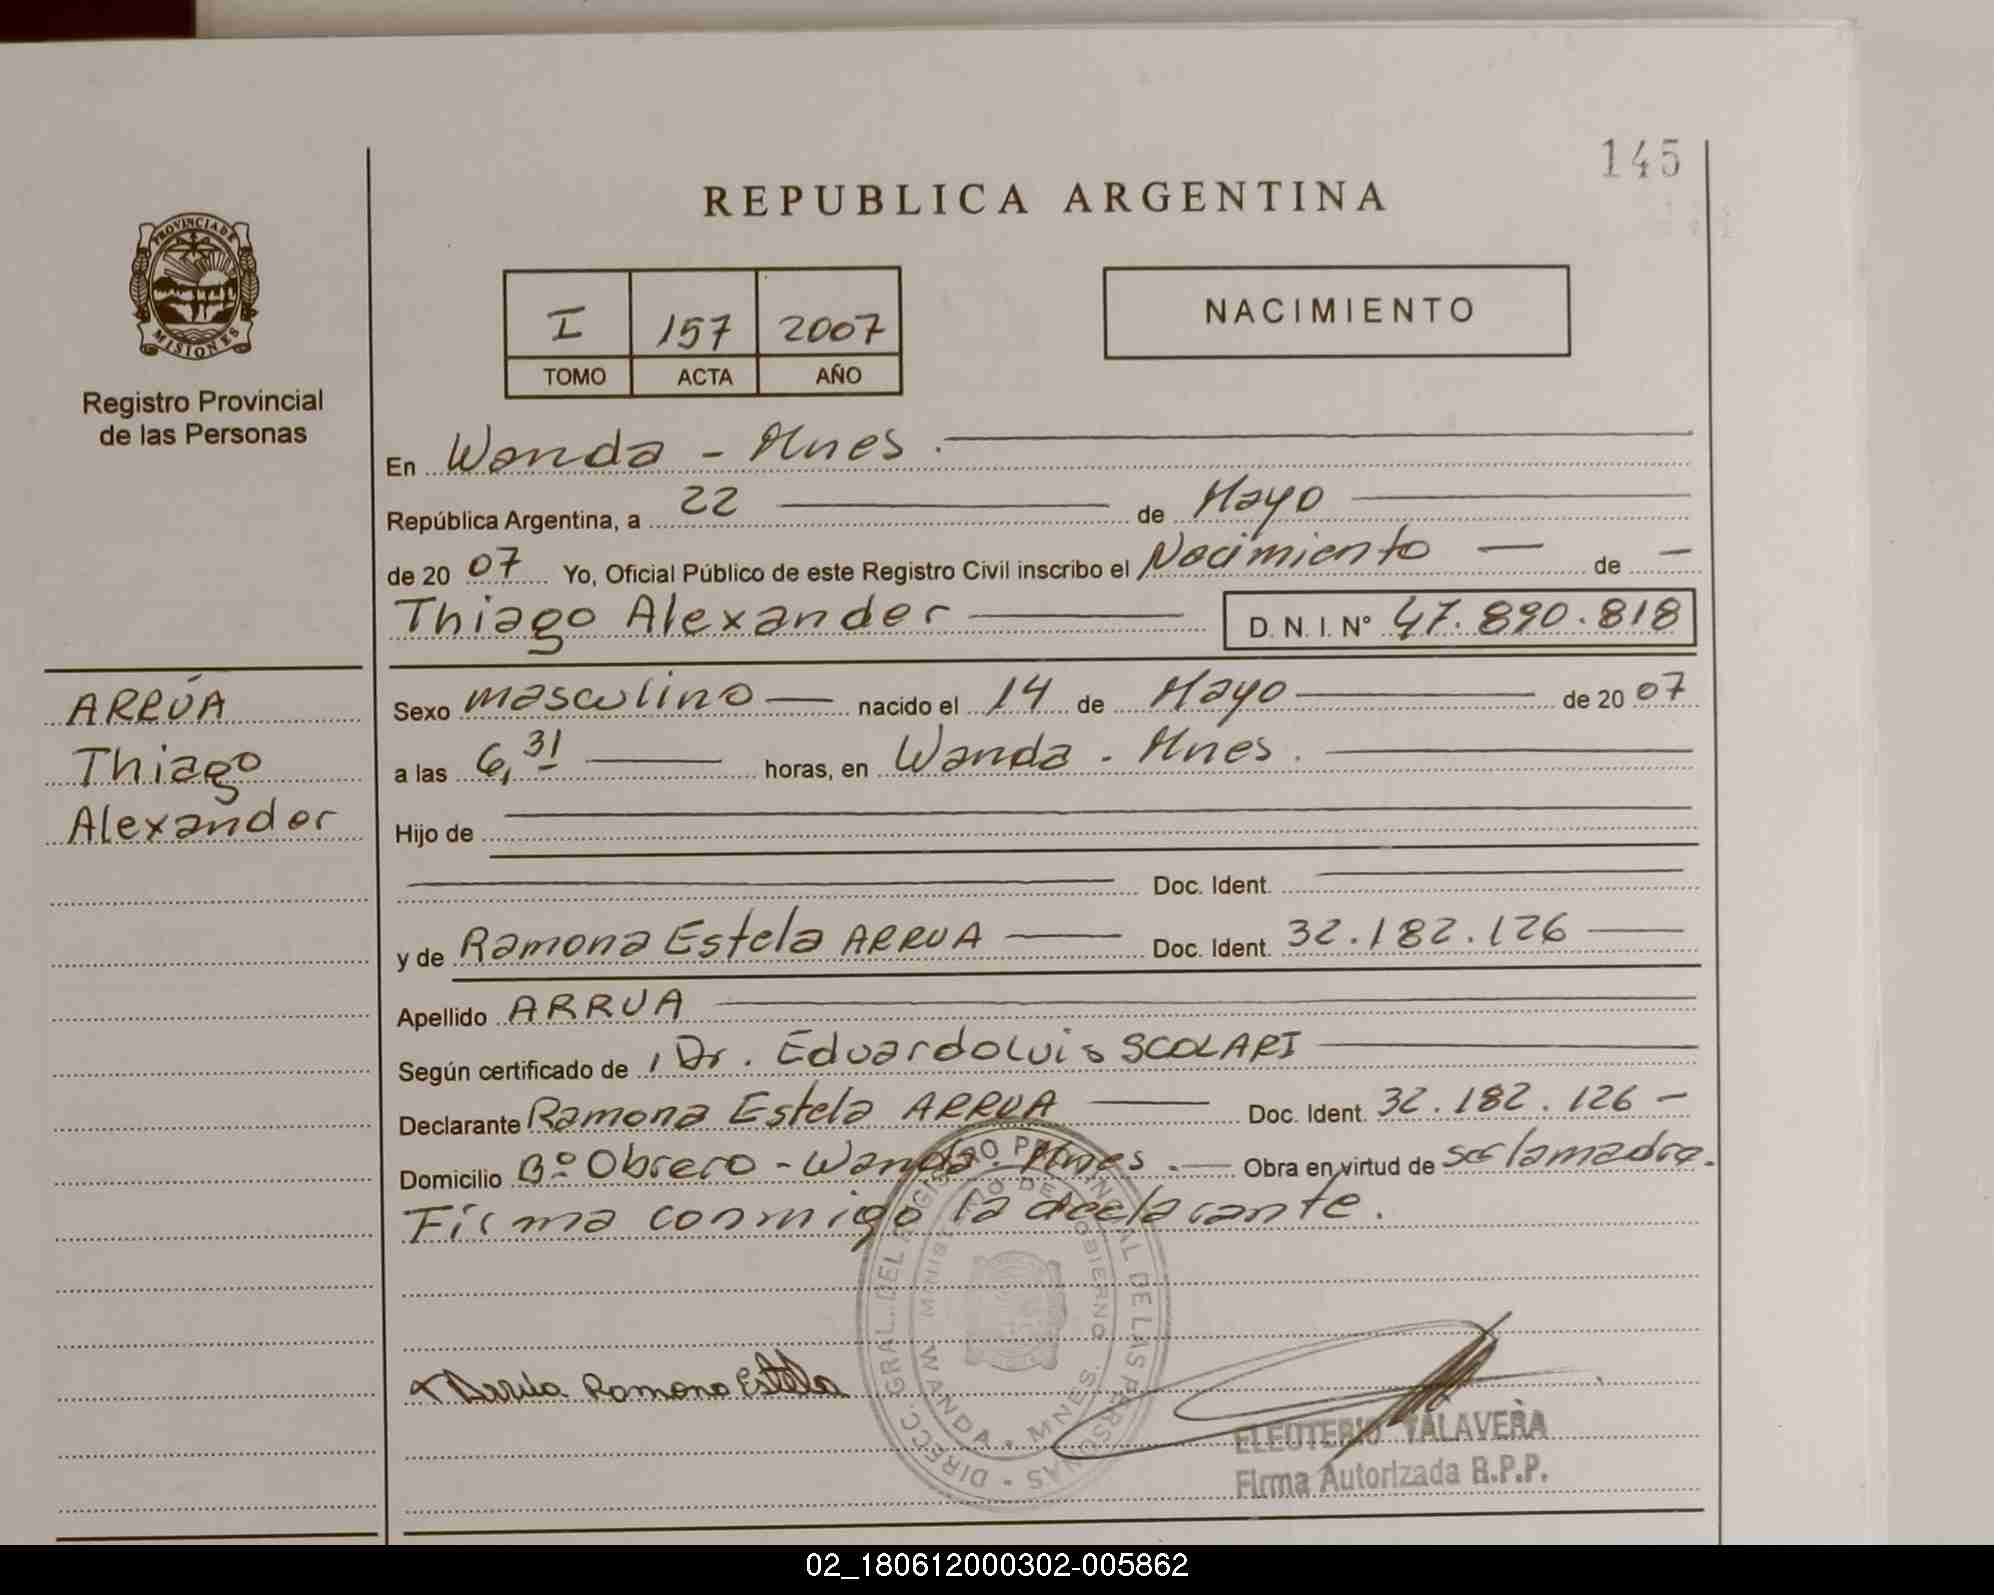 145
REPUBLICA ARGENTINA
PROVINCIA DE
MISIONES
Registro Provincial
de las Personas
I 157 2007
TOMO ACTA AÑO
NACIMIENTO
En Wanda - Mnes.
República Argentina, a 22 de Mayo
de 20 07 Yo, Oficial Público de este Registro Civil inscribo el Nacimiento — de —
Thiago Alexander D. N. I. Nº 47.890.818
ARRÚA
Thiago
Alexander
Sexo masculino — nacido el 14 de Mayo de 20 07
a las 6,31 horas, en Wanda - Mnes.
Hijo de
Doc. Ident.
y de Ramona Estela ARRUA — Doc. Ident. 32.182.126
Apellido ARRUA
Según certificado de Dr. Eduardo Luis SCOLARI
Declarante Ramona Estela ARRUA — Doc. Ident. 32.182.126 —
Domicilio Bº Obrero - Wanda. Mnes. — Obra en virtud de ser la madre.
Firma conmigo la declarante.
DIRECC. GRAL. DEL REGISTRO PROVINCIAL DE LAS PERSONAS
MINISTERIO DE GOBIERNO
WANDA • MNES.
Arrúa Ramona Estela
ELEUTERIO TALAVERA
Firma Autorizada R.P.P.
02_180612000302-005862